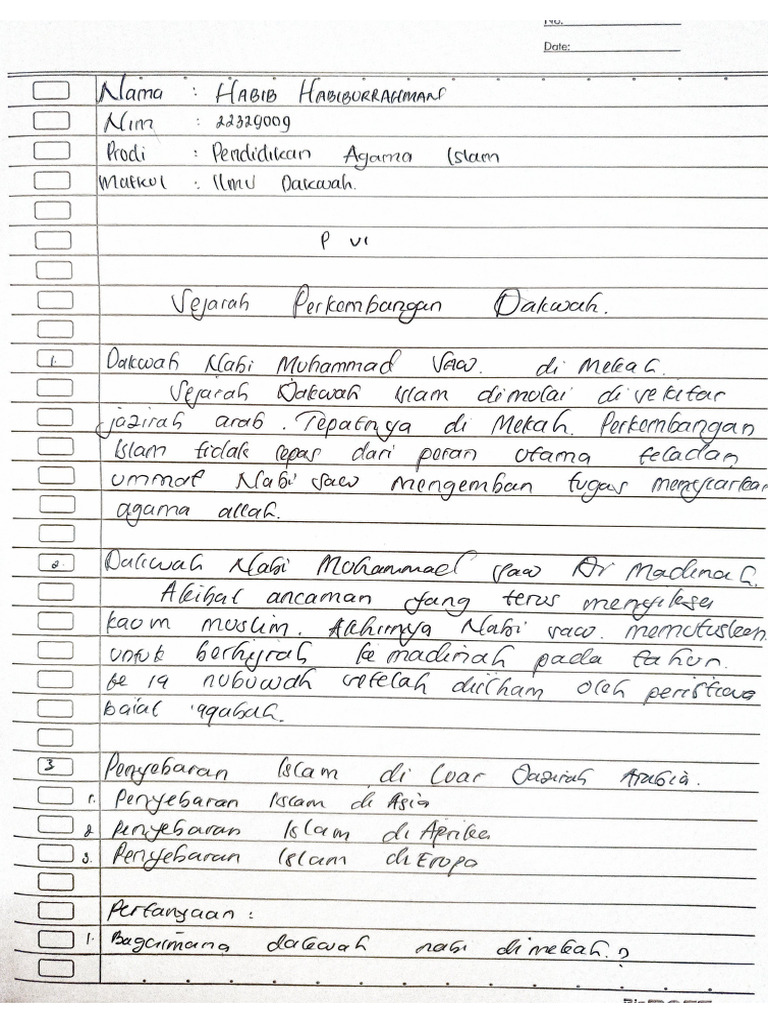 No.
Date:
Nama : HABIB HABIBURRAHMAN
Nim : 22329009
Prodi : Pendidikan Agama Islam
Matkul : Ilmu Dakwah.
P VI
Sejarah Perkembangan Dakwah.
1. Dakwah Nabi Muhammad Saw. di Mekah.
Sejarah Dakwah Islam dimulai disekitar
jazirah arab. Tepatnya di Mekah. Perkembangan
Islam tidak lepas dari peran utama teladan
ummat Nabi saw mengemban tugas mensyiarkan
agama allah.
2. Dakwah Nabi Muhammad saw Di Madinah.
Akibat ancaman yang terus menyiksa
kaum muslim. Akhirnya Nabi saw. memutuskan
untuk berhijrah ke madinah pada tahun.
ke 19 nubuwah setelah diilham oleh peristiwa
baiat 'aqabah.
3 Penyebaran Islam di luar Jazirah Arabia.
1. Penyebaran Islam di Asia
2 Penyebaran Islam di Aprika
3. Penyebaran Islam di Eropa
Pertanyaan :
1. Bagaimana dakwah nabi dimekah.?